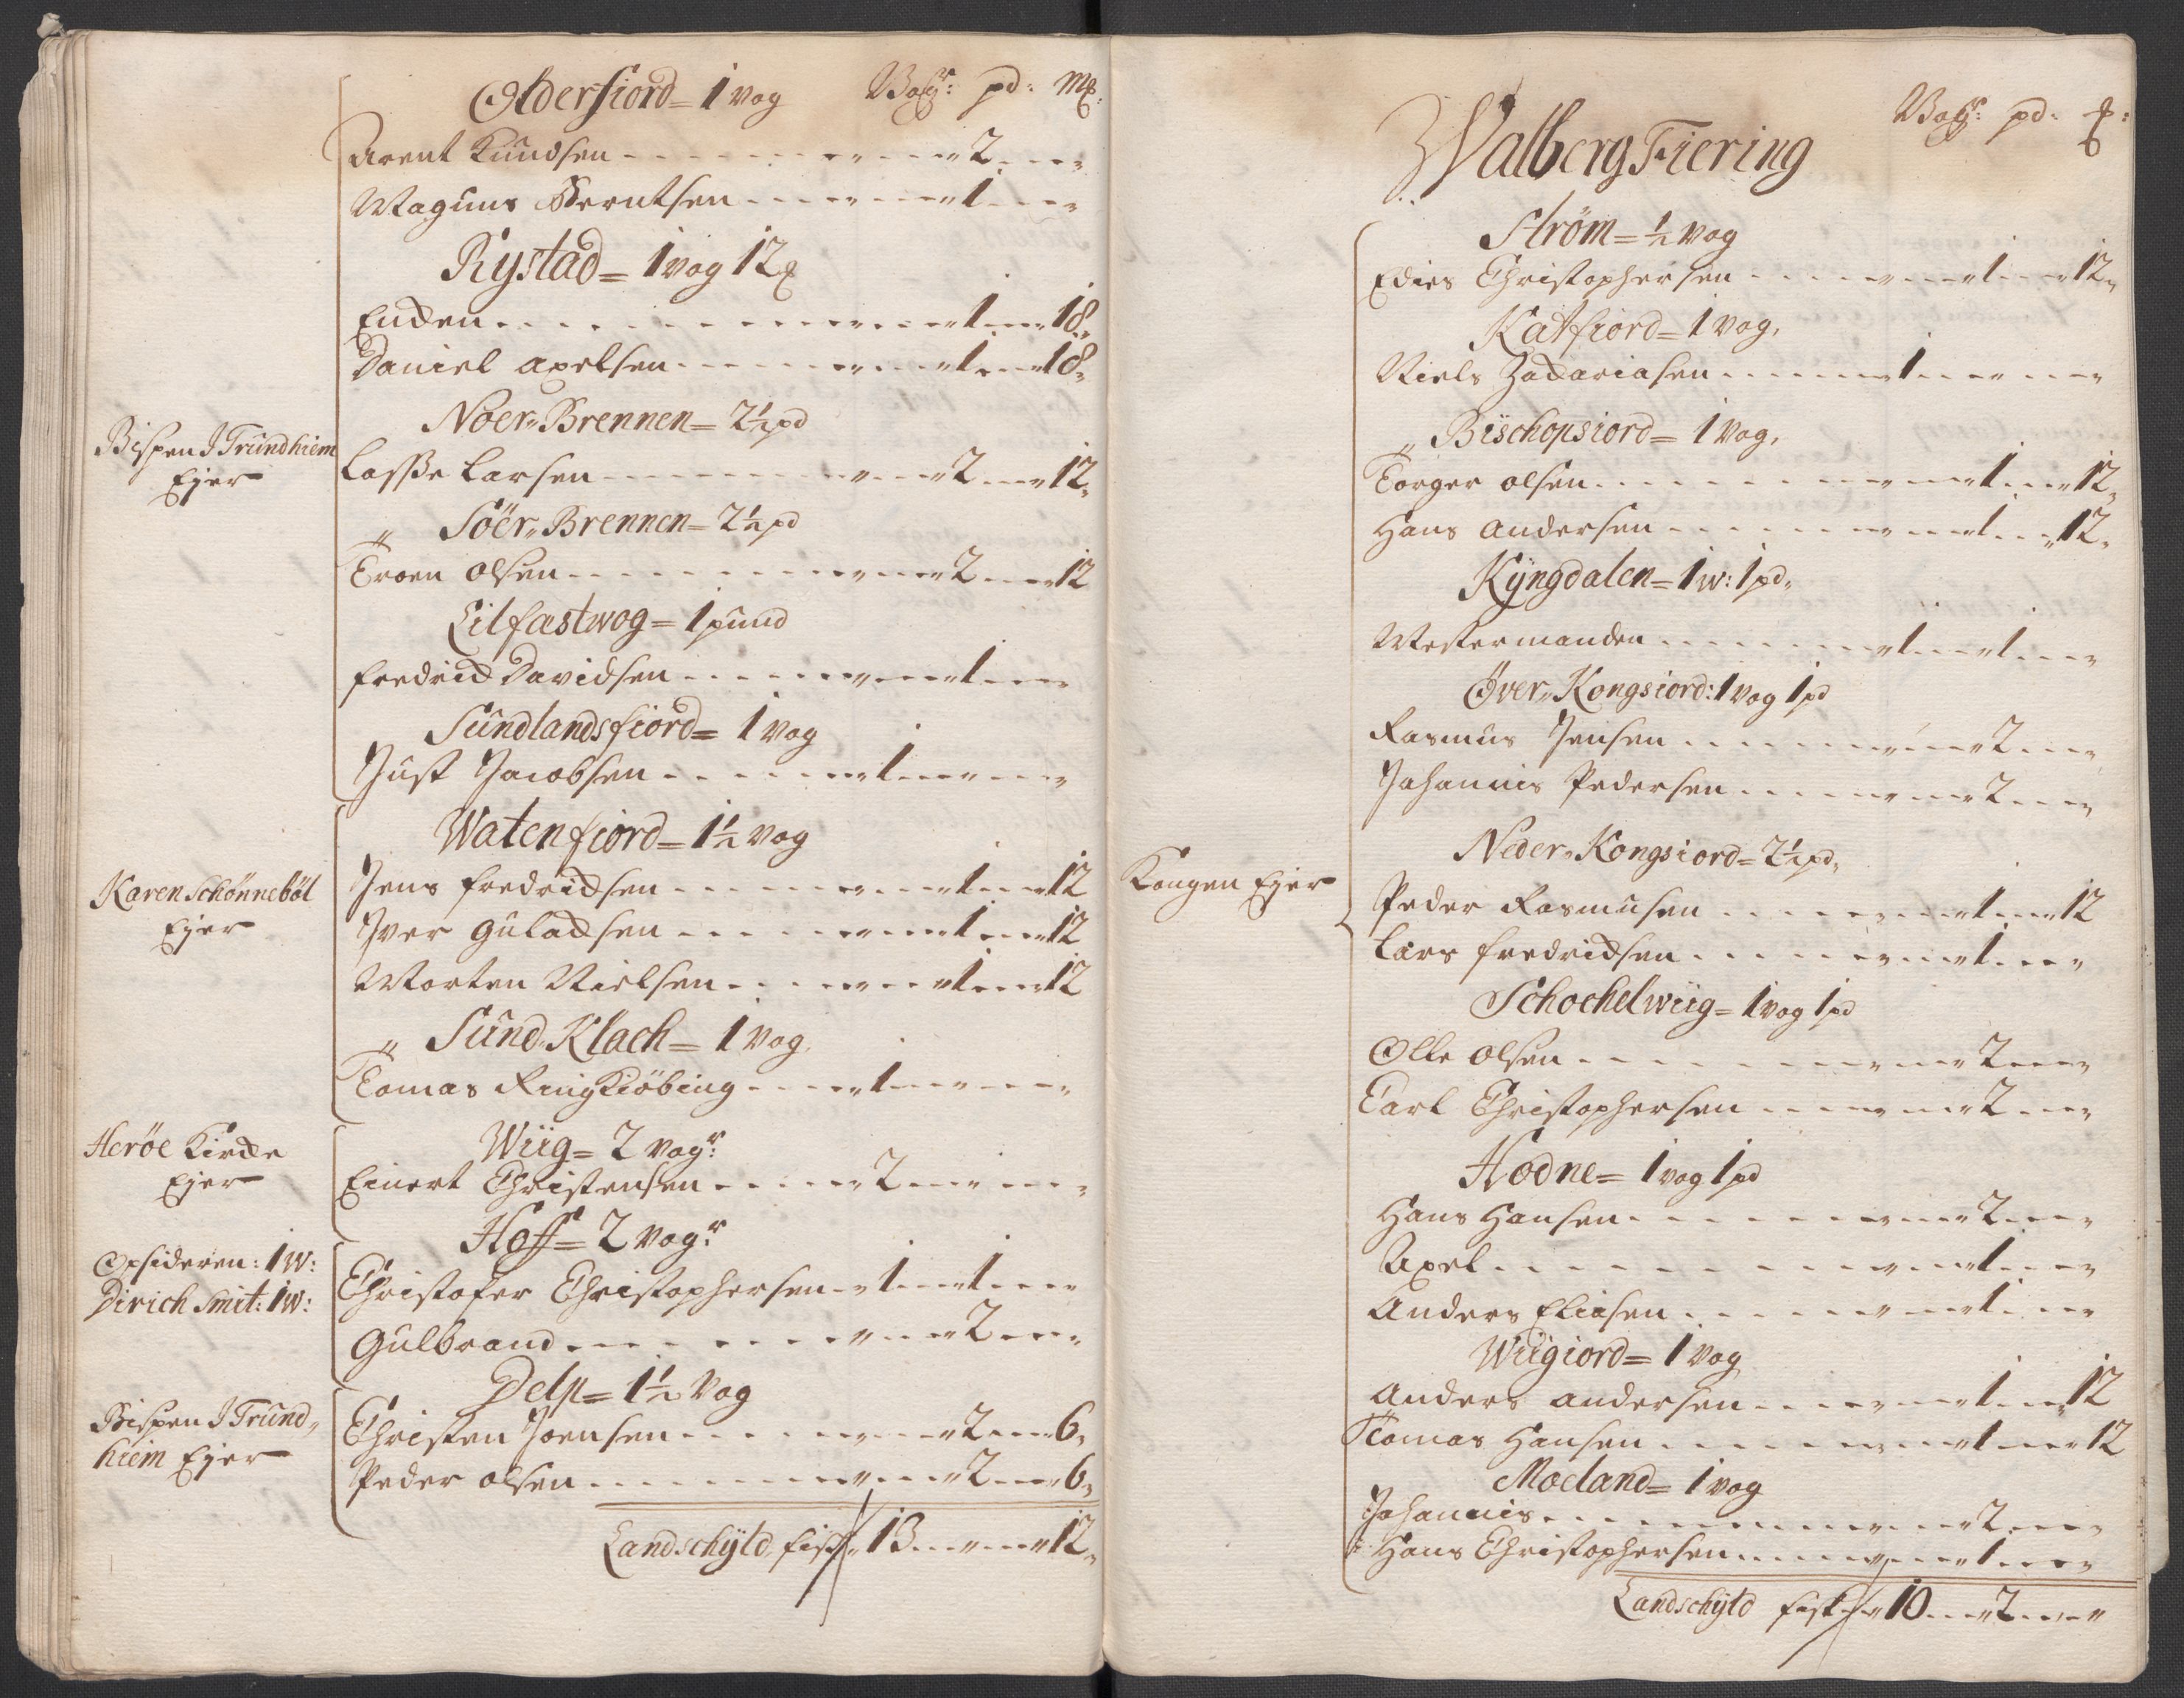 Olderfiord = 1 vog Vogr: pd: Mk:
Arent Knudsen - - - " 2 - - "
Magnus Berntsen - - - " 1 - - "
Rystad = 1 vog 12
Encken - - - " 1 - - " 18 "
Daniel Axelsen - - - " 1 - - " 18 "
Noer-Brennen = 2½ pd
Bispen I Trundhiem
Ejer
Lasse Larsen - - - " 2 - - " 12 "
Söer-Brennen = 2½ pd
Troen Olsen - - - " 2 - - " 12
Eilfastwog = 1 pund
Fredrich Davidsen - - - " 1 - - "
Sundlandsfiord = 1 vog
Just Jacobsen - - - " 1 - - " - - "
Watenfiord = 1½ vog
Karen Schönneböl
Ejer
Jens Fredrichsen - - - " 1 - - " 12
Iver Gulachsen - - - " 1 - - " 12
Morten Nielsen - - - " 1 - - " 12
Sund-Klach = 1 vog
Tomas Ringkiöbing - - - " 1 - - " - - "
Heröe Kircke
Ejer
Wiig = 2 vogr:
Einert Christensen - - - " 2 - - " - - "
Hoff = 2 vogr:
Opsideren: 1 W:
Dirich Smit: 1 W:
Christofer Christophersen - " 1 - - " 1 - - "
Gulbrand - - - " 2 - - "
Delp = 1½ vog
Bispen I Trund-
hiem Ejer
Christen Joensen - - - " 2 - - " 6 "
Peder Olsen - - - " 2 - - " 6 "
Landschyld, fisk " 13 - - " - - " 12 "
Vogr: pd:
Walberg Fiering
Ström = ½ vog
Edies Christophersen - - - " 1 - - " 12 "
Katfiord = 1 vog,
Niels Zachariasen - - - " 1 - - " - - "
Bischopsiord = 1 vog,
Torger Olsen - - - " 1 - - " 12 "
Hans Andersen - - - " 1 - - " 12 "
Kyngdalen = 1 w: 1 pd,
Mestermanden - - - " 1 - - " 1 - - "
Över-Kongsiord: 1 vog 1 pd
Rasmus Jensen - - - " 2 - - "
Johannis Pedersen - - - " 2 - - "
Neder-Kongsiord = 2½ pd,
Kongen Ejer
Peder Rasmusen - - - " 1 - - " 12
Lars Fredrichsen - - - " 1 - - "
Schochelwiig = 1 vog 1 pd
Olle Olsen - - - " 2 - - "
Carl Christophersen - - - " 2 - - "
Hodne = 1 vog 1 pd
Hans Hansen - - - " 2 - - "
Axel - - - " 1 - - "
Anders Eliasen - - - " 1 - - "
Wiigiord = 1 vog
Anders Andersen - - - " 1 - - " 12
Tomas Hansen - - - " 1 - - " 12
Moeland = 1 vog
Johannis - - - " 2 - - "
Hans Christophersen - - - " 1 - - "
Landschyld fisk " 10 - - " 2 - - "